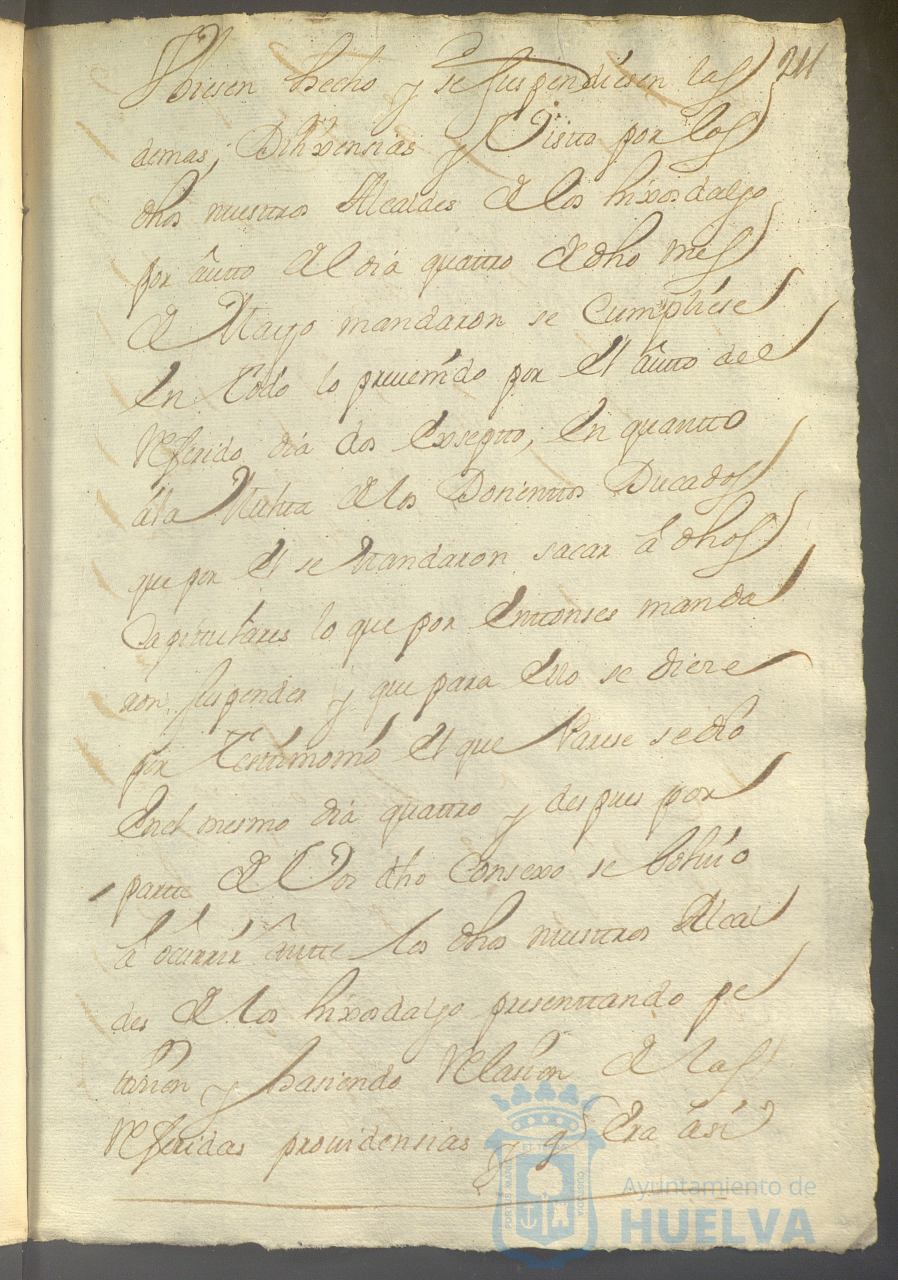 211
Vbiesen hecho y se suspendiesen las
demas; Dilixensias y Visto por los
dhos nuestros Alcaldes de los hixosdalgo
por autto del dia quattro de dho mes
de Mayo mandaron se Cumpliese
En Todo lo preuenido por El autto del
Referido dia dos Exsepto, En quantto
ala Multa de los Dosienttos Ducados
que por El se Mandaron sacar â dhos
Capitulares lo que por Enttonses manda
ron suspender y que para Ello se diere
por Testimonio El que Parese se dio
Enel mesmo dia quattro y despues por
partte de Vos dho Consexo se boluio
â ôcurrir ântte los dhos nuestros Alcal
des de los hixosdalgo presenttando pe
tision y hasiendo Relasion de las
Referidas prouidensias y q Era âsi
Ayuntamiento de
HUELVA